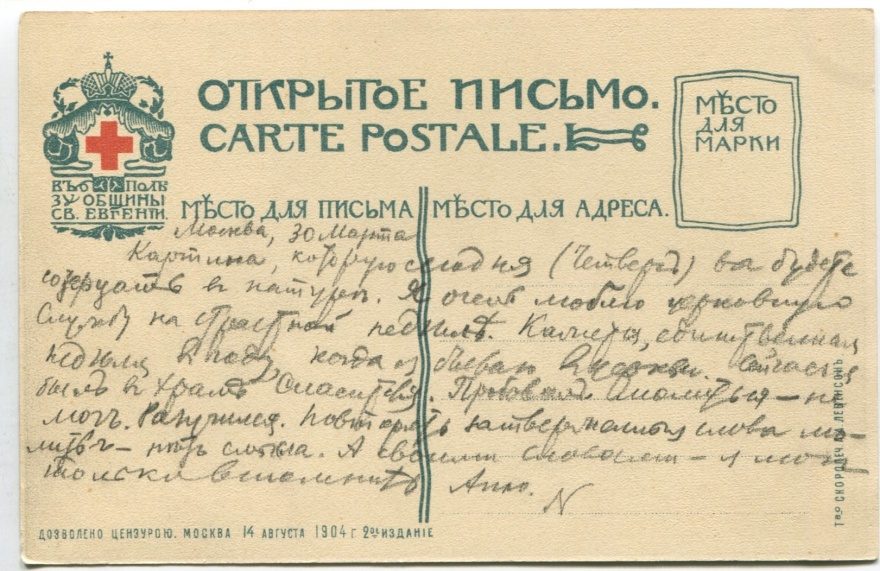 ОТКРЫТОЕ ПИСЬМО.
CARTE POSTALE.
МѢСТО
ДЛЯ
МАРКИ
ВЪ ПОЛЬ
ЗУ ОБЩИНЫ
СВ. ЕВГЕНІИ.
МѢСТО ДЛЯ ПИСЬМА
МѢСТО ДЛЯ АДРЕСА.
Москва, 30 Марта
Картина, которую сегодня (Четвергъ) вы будете
созерцать в натурѣ. Я очень люблю церковную
Службу на Страстной недѣлѣ. Кажется, единственная
недѣля в году, когда я бываю в церкви. Сейчасъ
былъ в Храмѣ Спасителя. Пробовалъ молиться – не
могъ. Разучился. Повторять затверженныя слова мо-
литвъ – нѣтъ смысла. А своими словами – я могу
только вспомнить Аню.
N
ДОЗВОЛЕНО ЦЕНЗУРОЮ. МОСКВА 14 АВГУСТА 1904 г. 2ое ИЗДАНІЕ
Тво СКОРОПЕЧ.